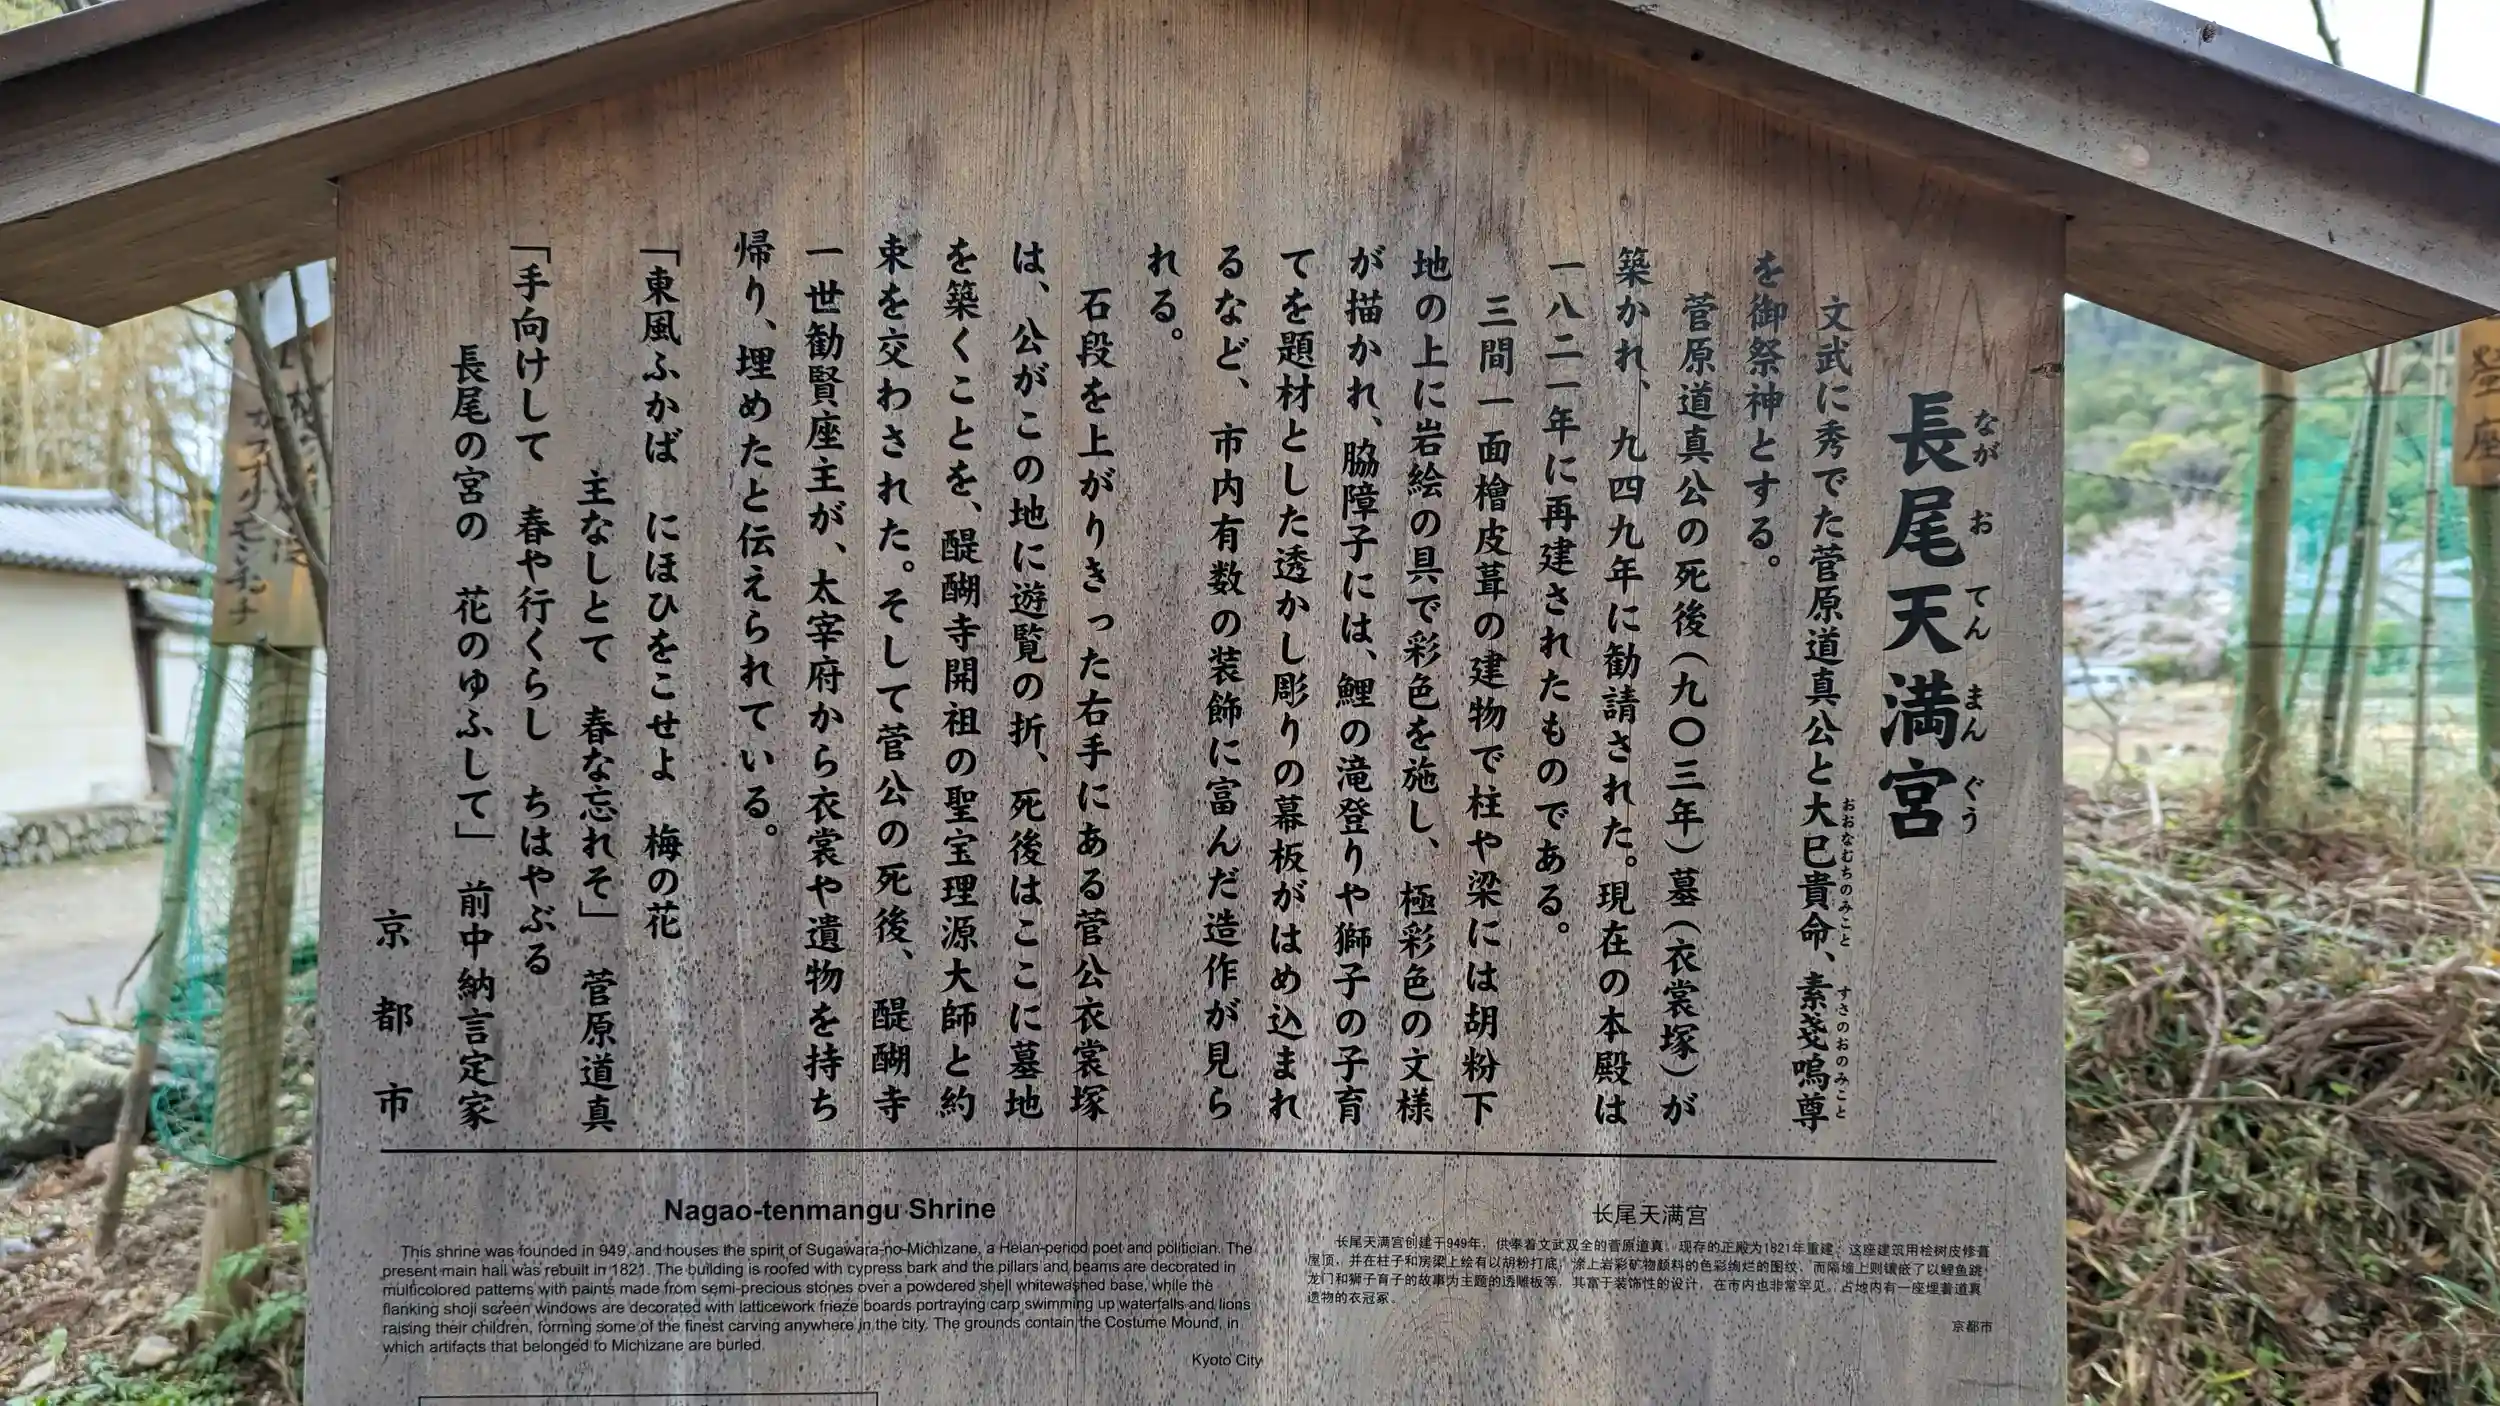 長尾天満宮
ながおてんまんぐう
文武に秀でた菅原道真公と大巳貴命、素戔嗚尊
おおなむちのみこと
すさのおのみこと
を御祭神とする。
菅原道真公の死後（九〇三年）墓（衣裳塚）が
築かれ、九四九年に勧請された。現在の本殿は
一八二一年に再建されたものである。
三間一面檜皮葺の建物で柱や梁には胡粉下
地の上に岩絵の具で彩色を施し、極彩色の文様
が描かれ、脇障子には、鯉の滝登りや獅子の子育
てを題材とした透かし彫りの幕板がはめ込まれ
るなど、市内有数の装飾に富んだ造作が見ら
れる。
石段を上がりきった右手にある菅公衣裳塚
は、公がこの地に遊覧の折、死後はここに墓地
を築くことを、醍醐寺開祖の聖宝理源大師と約
束を交わされた。そして菅公の死後、醍醐寺
一世勧賢座主が、太宰府から衣裳や遺物を持ち
帰り、埋めたと伝えられている。
「東風ふかば にほひをこせよ 梅の花
主なしとて 春な忘れそ」 菅原道真
「手向けして 春や行くらし ちはやぶる
長尾の宮の 花のゆふして」 前中納言定家
京都市
Nagao-tenmangu Shrine
This shrine was founded in 949, and houses the spirit of Sugawara-no-Michizane, a Heian-period poet and politician. The
present main hall was rebuilt in 1821. The building is roofed with cypress bark and the pillars and beams are decorated in
multicolored patterns with paints made from semi-precious stones over a powdered shell whitewashed base, while the
flanking shoji screen windows are decorated with latticework frieze boards portraying carp swimming up waterfalls and lions
raising their children, forming some of the finest carving anywhere in the city. The grounds contain the Costume Mound, in
which artifacts that belonged to Michizane are buried.
Kyoto City
长尾天满宫
长尾天满宫创建于949年，供奉着文武双全的菅原道真。现存的正殿为1821年重建，这座建筑用桧树皮修葺
屋顶，并在柱子和房梁上绘有以胡粉打底，涂上岩彩矿物颜料的色彩绚烂的图纹，而隔墙上则镶嵌了以鲤鱼跳
龙门和狮子育子的故事为主题的透雕板等，其富于装饰性的设计，在市内也非常罕见。占地内有一座埋着道真
遗物的衣冠冢。
京都市